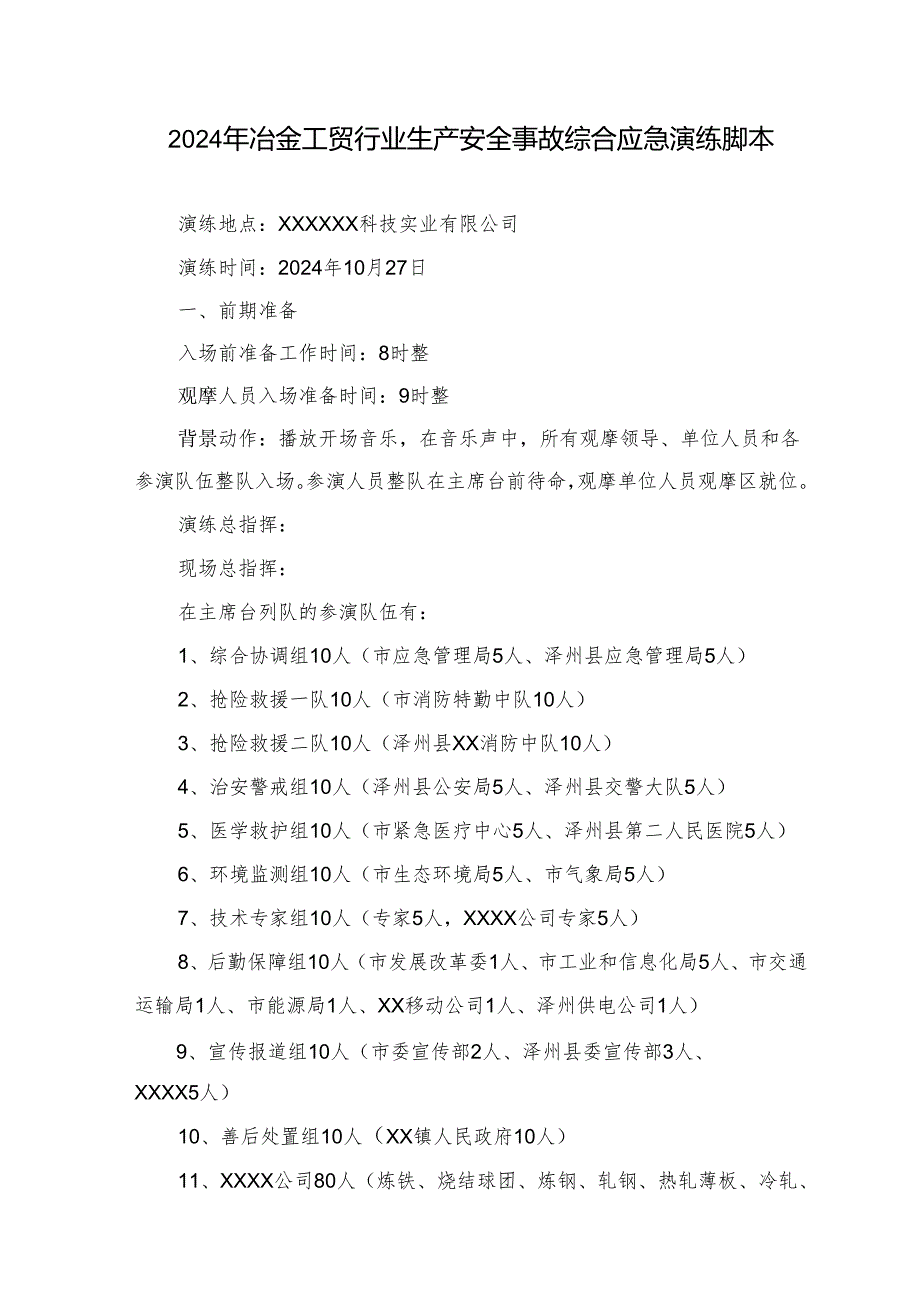 2024年冶金工贸行业生产安全事故综合应急演练脚本
演练地点：XXXXXX科技实业有限公司
演练时间：2024年10月27日
一、前期准备
入场前准备工作时间：8时整
观摩人员入场准备时间：9时整
背景动作：播放开场音乐，在音乐声中，所有观摩领导、单位人员和各
参演队伍整队入场。参演人员整队在主席台前待命，观摩单位人员观摩区就位。
演练总指挥：
现场总指挥：
在主席台列队的参演队伍有：
1、综合协调组10人（市应急管理局5人、泽州县应急管理局5人）
2、抢险救援一队10人（市消防特勤中队10人）
3、抢险救援二队10人（泽州县XX消防中队10人）
4、治安警戒组10人（泽州县公安局5人、泽州县交警大队5人）
5、医学救护组10人（市紧急医疗中心5人、泽州县第二人民医院5人）
6、环境监测组10人（市生态环境局5人、市气象局5人）
7、技术专家组10人（专家5人，XXXX公司专家5人）
8、后勤保障组10人（市发展改革委1人、市工业和信息化局5人、市交通
运输局1人、市能源局1人、XX移动公司1人、泽州供电公司1人）
9、宣传报道组10人（市委宣传部2人、泽州县委宣传部3人、
XXXX5人）
10、善后处置组10人（XX镇人民政府10人）
11、XXXX公司80人（炼铁、烧结球团、炼钢、轧钢、热轧薄板、冷轧、